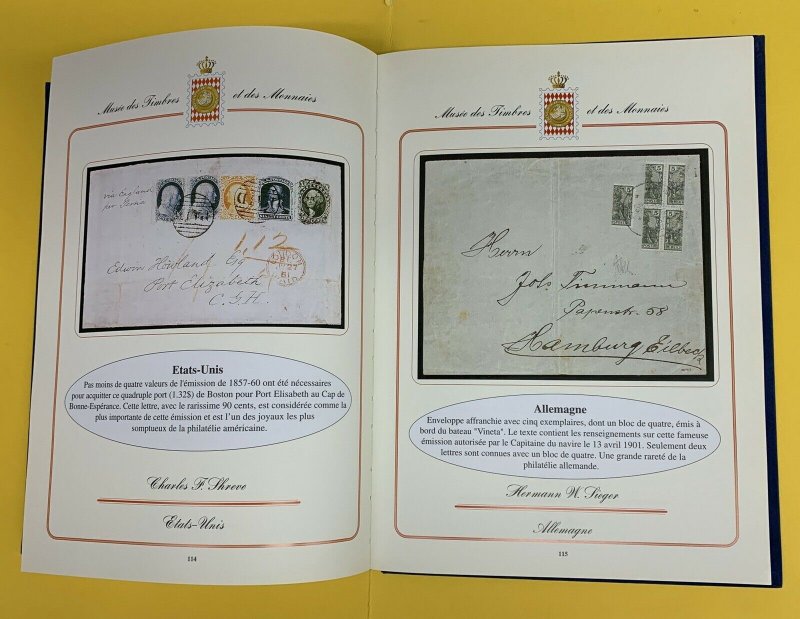 Musée des Timbres et des Monnaies
via England
per Persia
1.12
Edwin Howland Esq
Port Elizabeth
C.G.H.
Etats-Unis
Pas moins de quatre valeurs de l'émission de 1857-60 ont été nécessaires
pour acquitter ce quadruple port (1.32$) de Boston pour Port Elisabeth au Cap de
Bonne-Espérance. Cette lettre, avec le rarissime 90 cents, est considérée comme la
plus importante de cette émission et est l'un des joyaux les plus
somptueux de la philatélie américaine.
Charles F. Shreve
Etats-Unis
114
Musée des Timbres et des Monnaies
Herrn
Johs Timmann
Papenstr. 58
Hamburg Eilbeck
Allemagne
Enveloppe affranchie avec cinq exemplaires, dont un bloc de quatre, émis à
bord du bateau "Vineta". Le texte contient les renseignements sur cette fameuse
émission autorisée par le Capitaine du navire le 13 avril 1901. Seulement deux
lettres sont connues avec un bloc de quatre. Une grande rareté de la
philatélie allemande.
Hermann W. Sieger
Allemagne
115